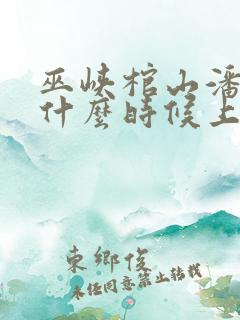 巫峡棺山潘
什麽時候上
東鄉俊
未经同意禁止转载